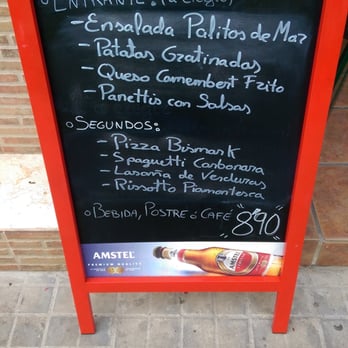 ENTRANTE:
-Ensalada Palitos de Mar
-Patatas Gratinadas
-Queso Camembert Frito
-Panettis con Salsas
o SEGUNDOS:
-Pizza Bismark
-Spaguetti Carbonara
-Lasaña de Verduras
-Rissotto Piamontesca
o BEBIDA, POSTRE ó CAFÉ "8'90"
AMSTEL
PREMIUM QUALITY
AMSTEL